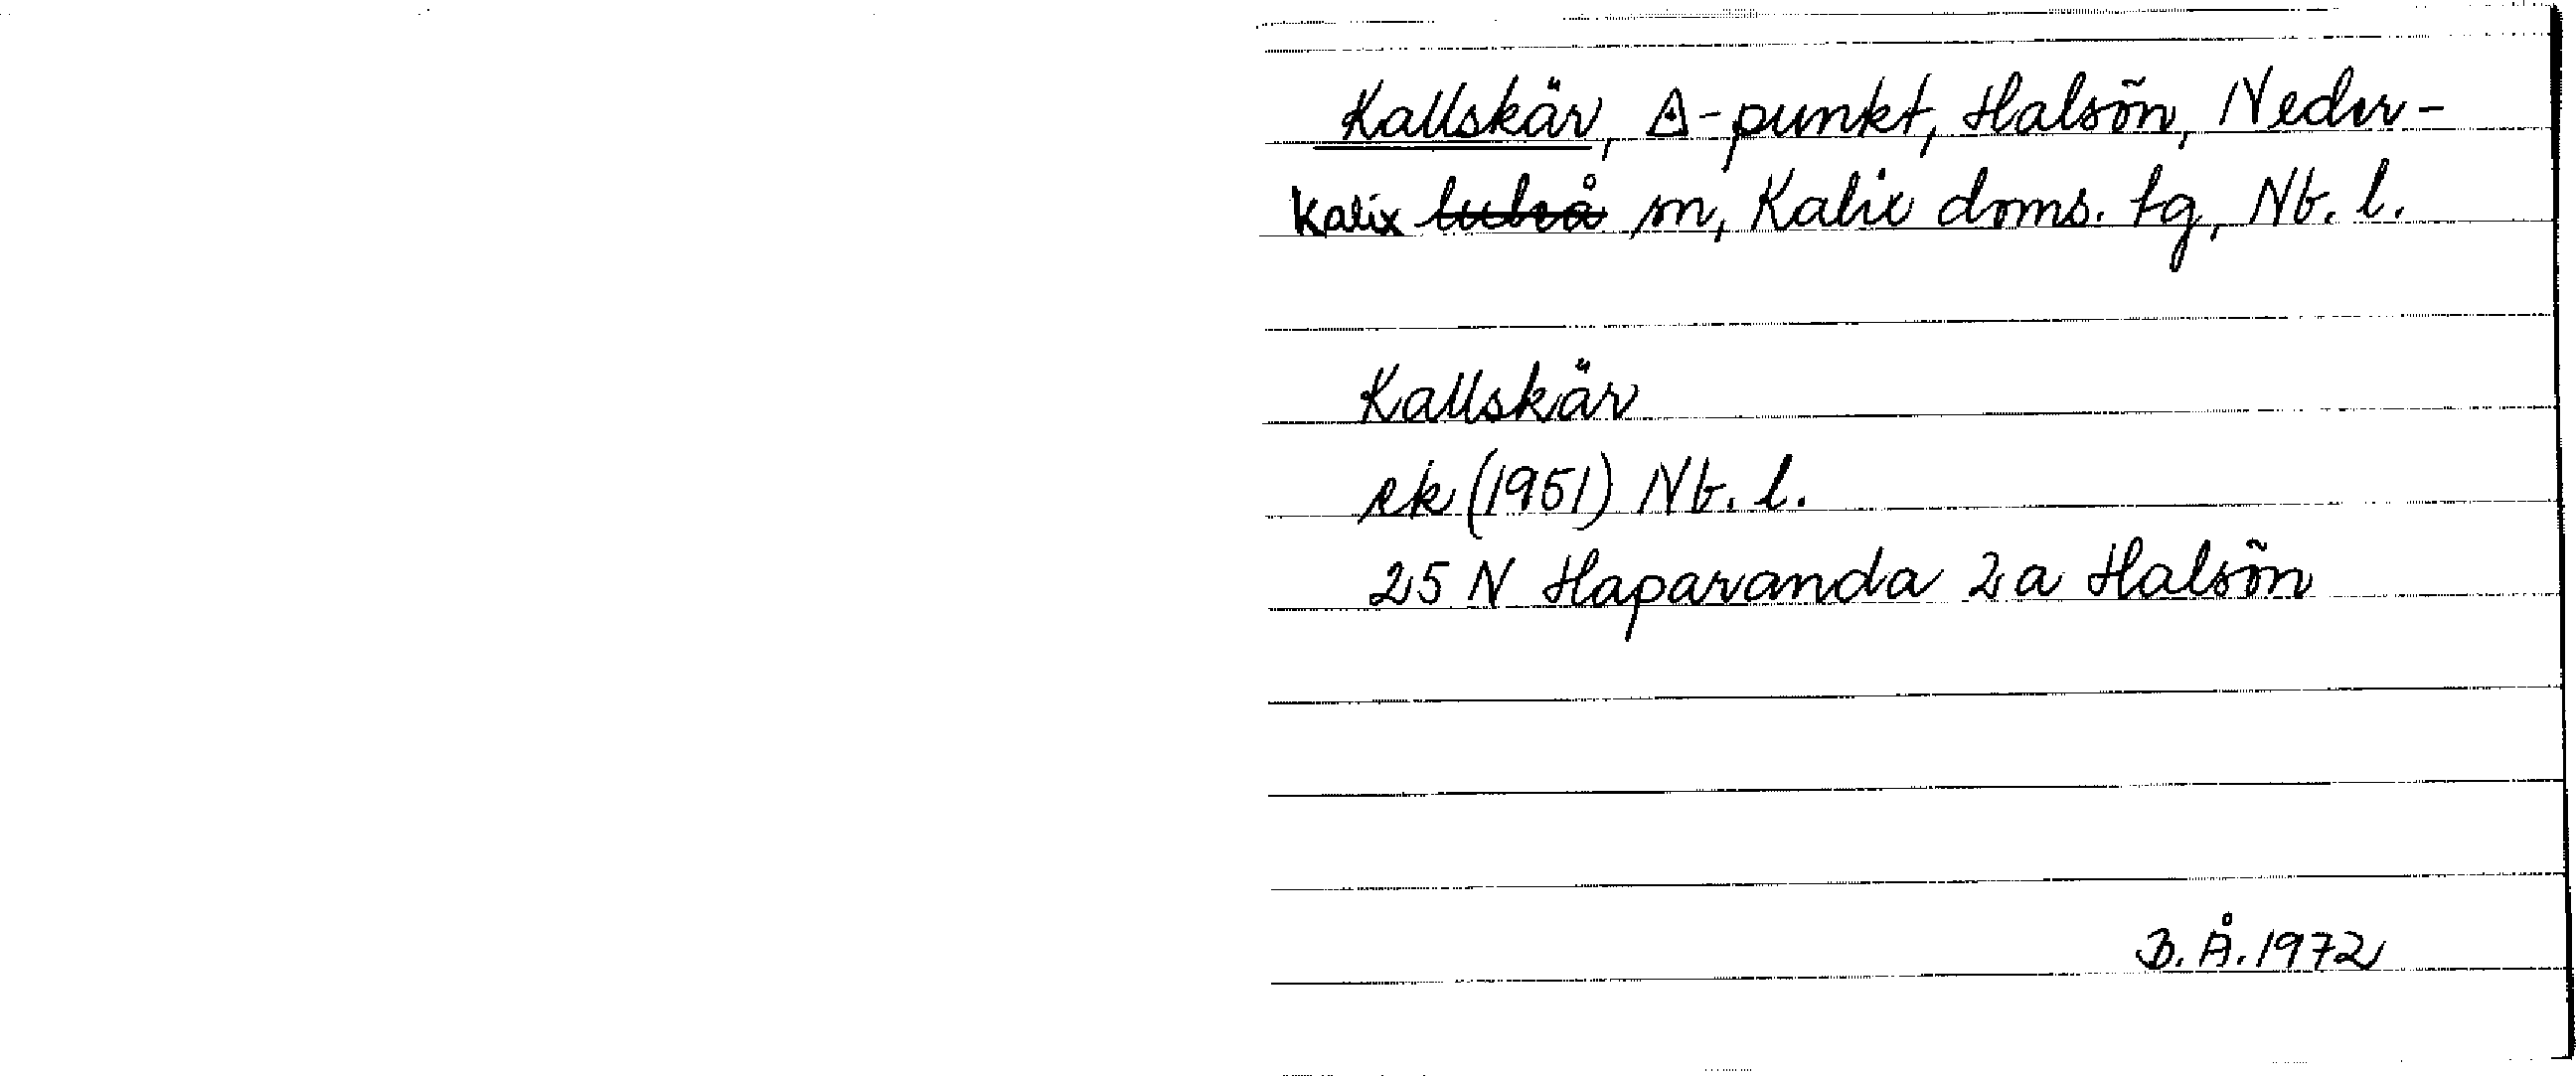 Kallskär, △-punkt, Halsön, Neder-
Kalix sn, Kalix doms. tg, Nb. l.
Kallskär
rk (1951) Nb. l.
25 N Haparanda 2a Halsön
B. Å. 1972